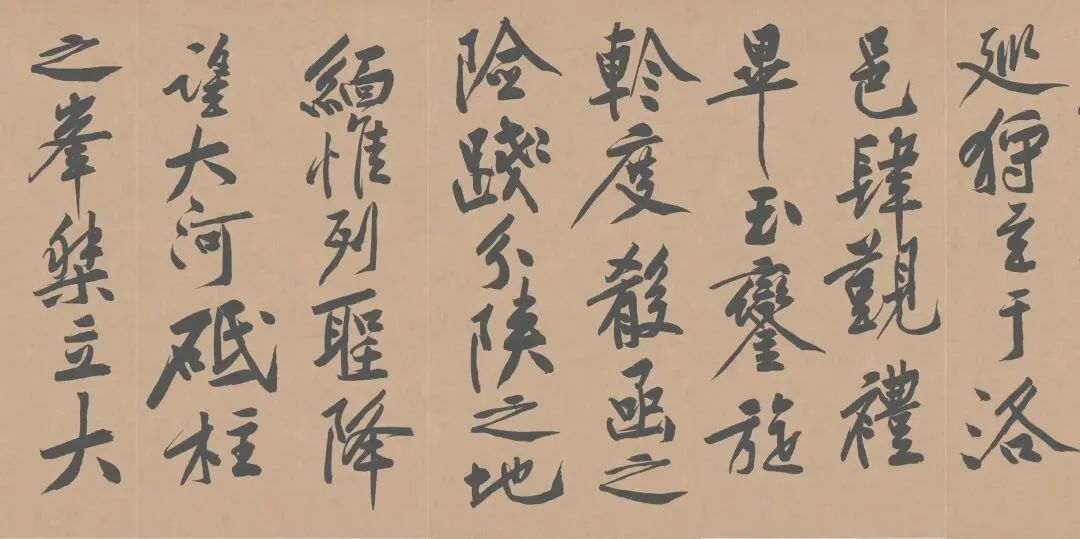 巡狩至于洛
邑肆覲禮
畢玉鑾旋
軫度殽函之
險踐分陝之地
緬惟列聖降
望大河砥柱
之峯桀立大